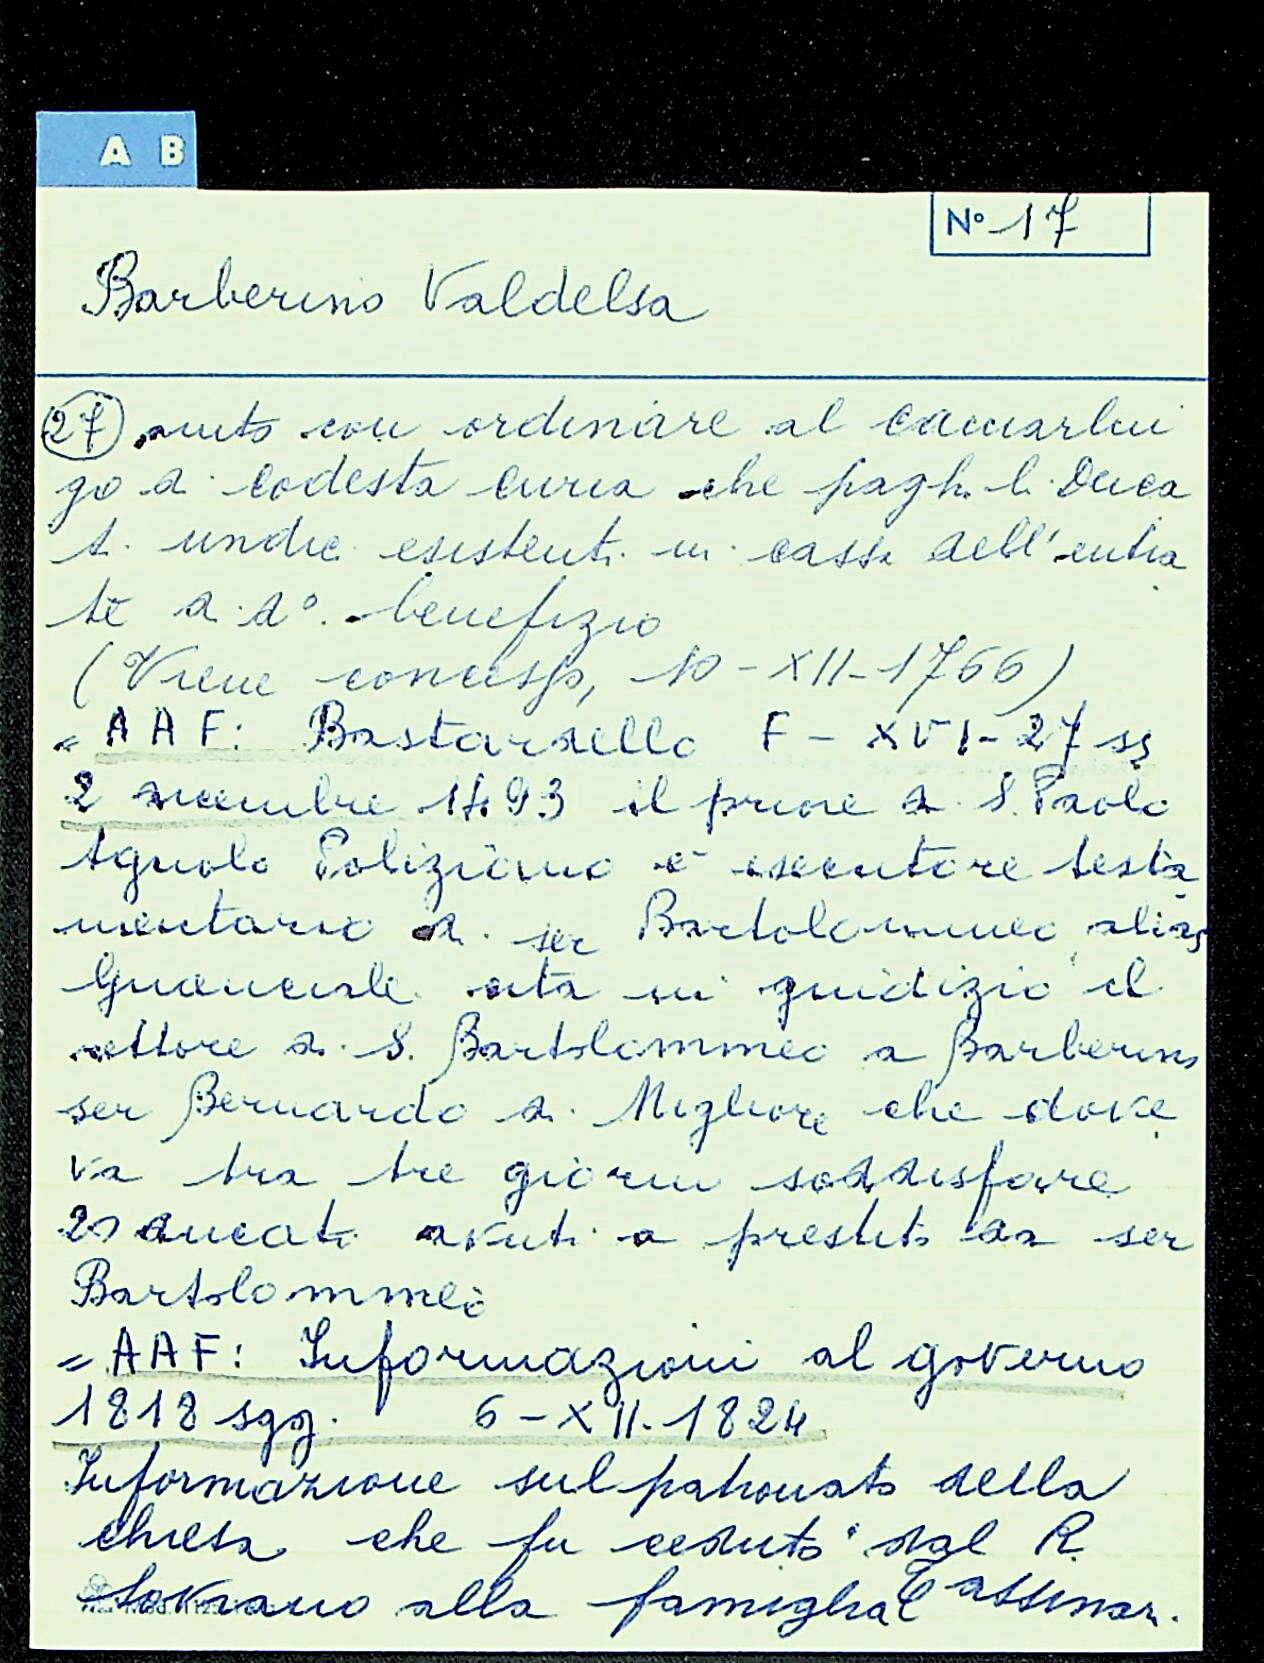 A B
Nº 17
Barberino Valdelsa
27 nuto con ordinare al camarlin
go di codesta curia che paghi li Duca
ti undic esistenti in cassa dell'entra
te di do. benefizio
(Viene concesso, 10-XII-1766)
= AAF: Bastardello F - XVI-27 ss
2 dicembre 1493 il priore di S. Paolo
Agnolo Poliziano è esecutore testa
mentario di ser Bartolommeo alias
Guanciale cita in giudizio il
rettore di S. Bartolommeo a Barberino
ser Bernardo di Migliore che dove
va tra tre giorni soddisfare
20 ducati avuti a prestito da ser
Bartolommeo
= AAF: Informazioni al governo
1818 sgg. 6-XII-1824
Informazione sul patronato della
chiesa che fu ceduto dal R.
Sovrano alla famiglia